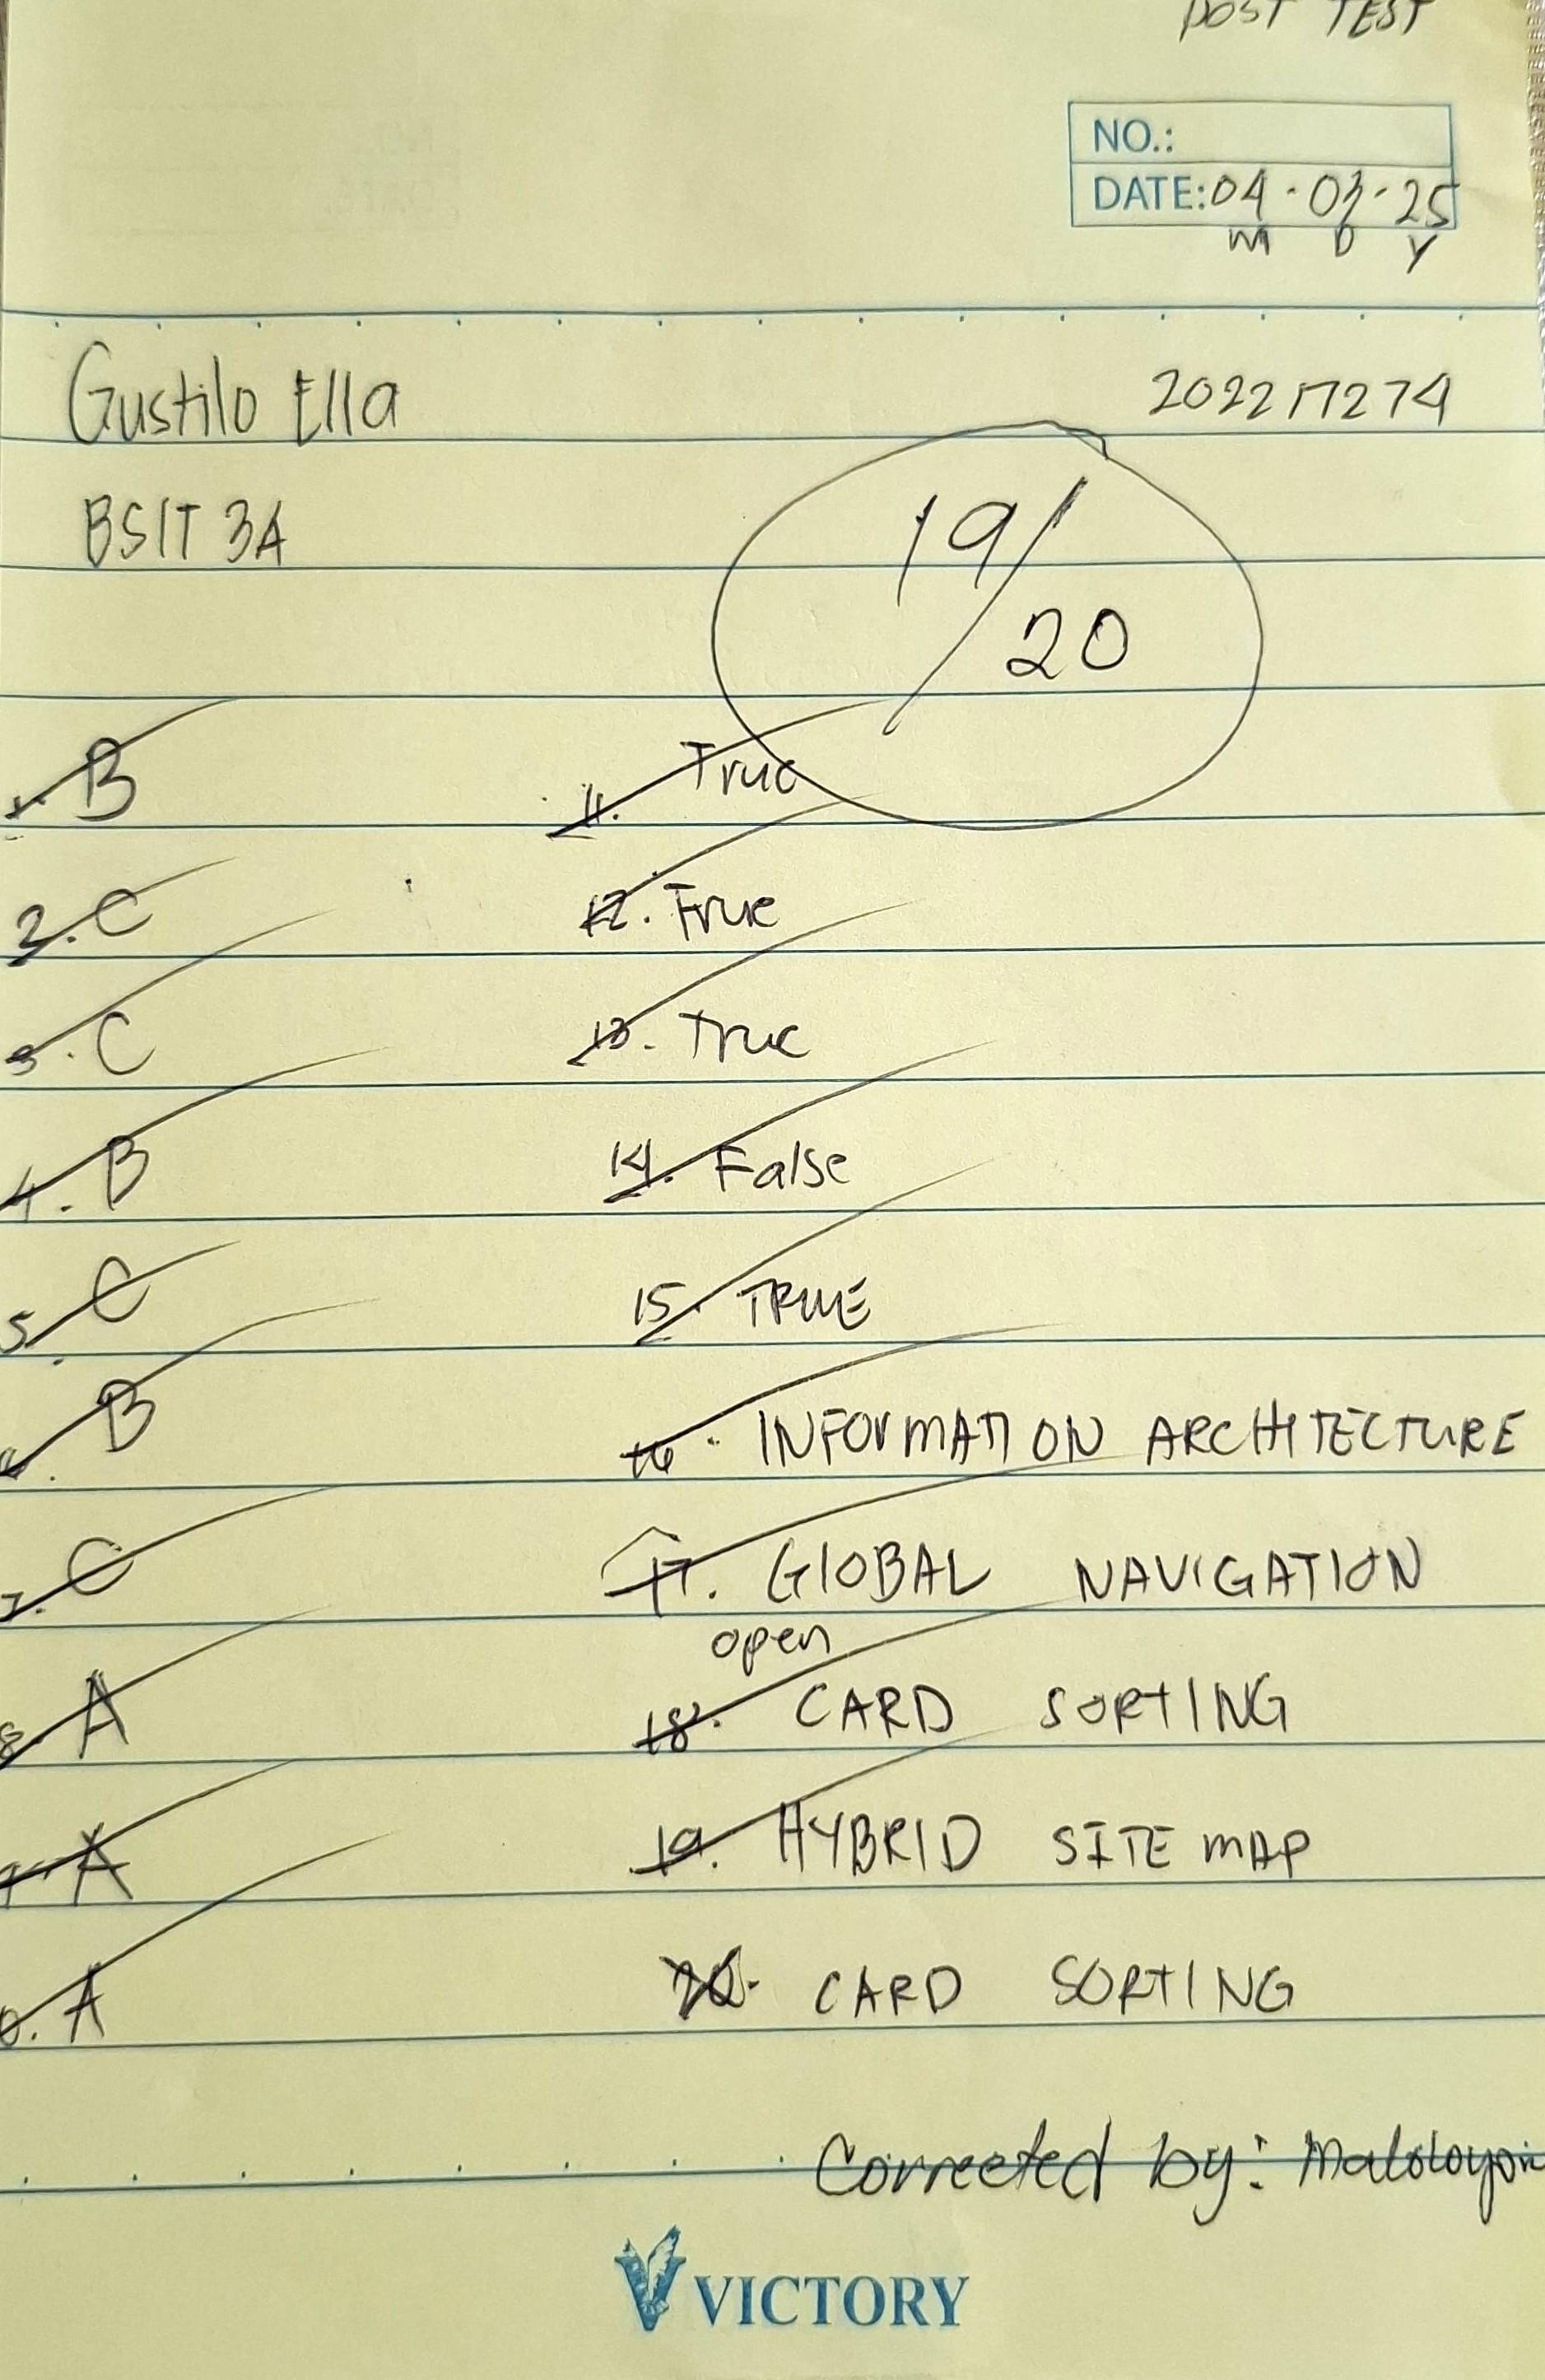 POST TEST
NO.:
DATE: 04-03-25
M D Y
Gustilo Ella 202217274
BSIT 3A
19/20
1. B
2. C
3. C
4. B
5. C
6. B
7. C
8. A
9. A
10. A
11. True
12. True
13. True
14. False
15. TRUE
16. INFORMATION ARCHITECTURE
17. GLOBAL NAVIGATION
open
18. CARD SORTING
19. HYBRID SITE MAP
20. CARD SORTING
Corrected by:
VICTORY